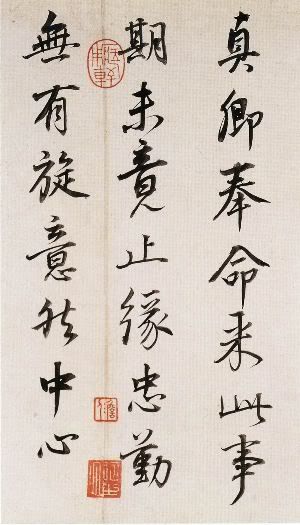 真卿奉命来此事
期未竟止缘忠勤
無有旋意然中心